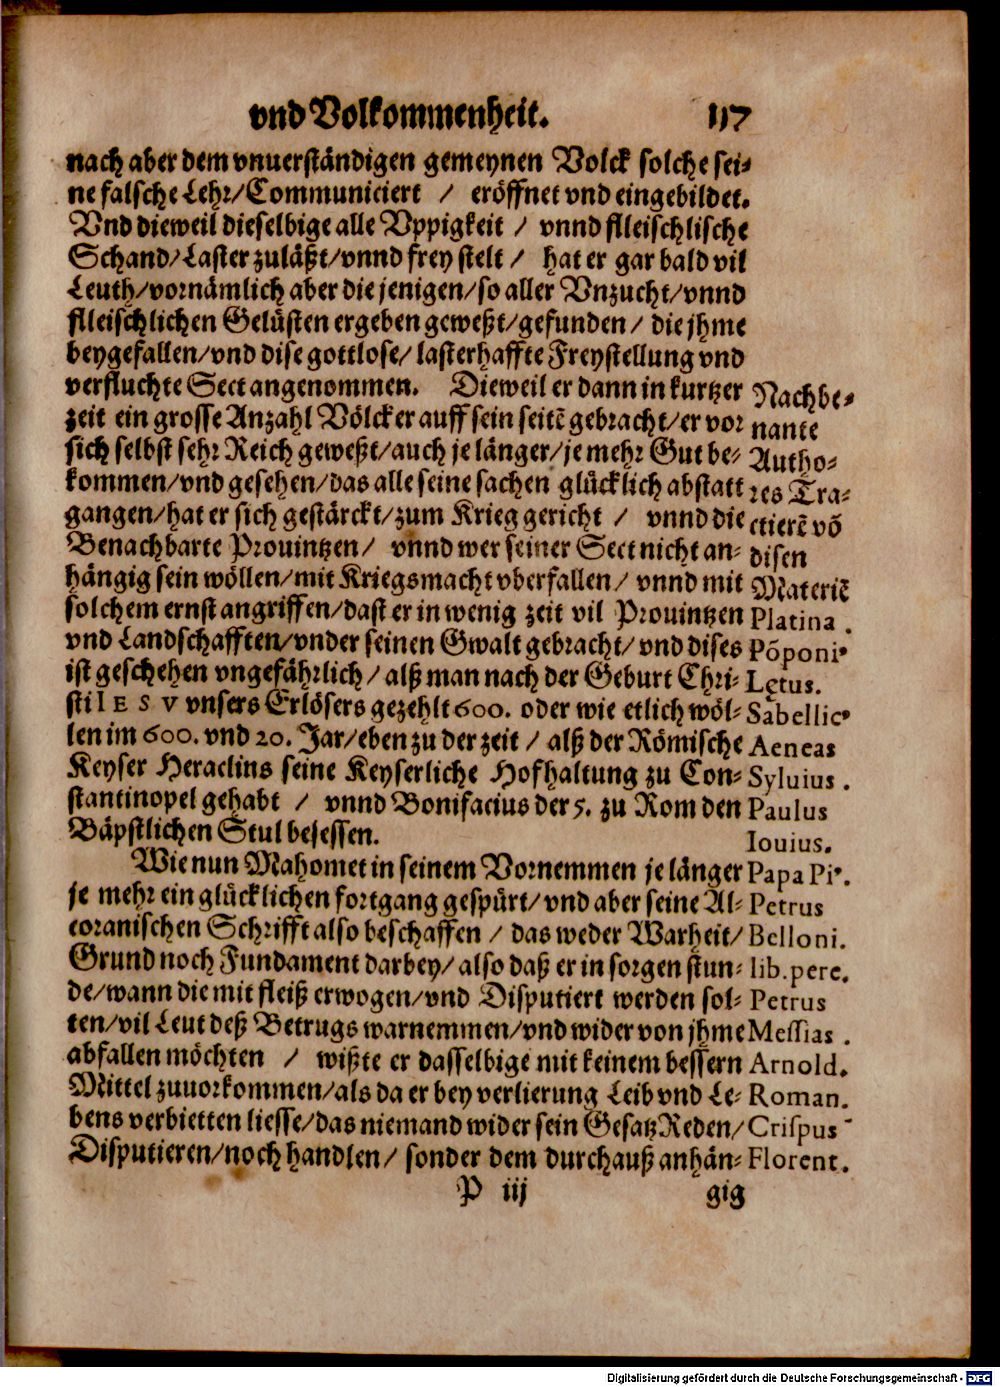 vnd Volkommenheit. 117
nach aber dem vnuerständigen gemeynen Volck solche sei-
ne falsche Lehr/Communiciert / eröffnet vnd eingebildet.
Vnd dieweil dieselbige alle Vppigkeit / vnnd flleischlische
Schand/Laster zuläßt/vnnd frey stelt / hat er gar bald vil
Leuth/vornämlich aber die jenigen/so aller Vnzucht/vnnd
flleischlichen Gelüsten ergeben geweßt/gefunden/ die jhme
beygefallen/vnd dise gottlose/ lasterhaffte Freystellung vnd
verfluchte Sect angenommen. Dieweil er dann in kurtzer
zeit ein grosse Anzahl Völcker auff sein seitẽ gebracht/er vor
sich selbst sehr Reich geweßt/auch je länger/je mehr Gut be-
kommen/vnd gesehen/das alle seine sachen glücklich abstatt
gangen/hat er sich gestärckt/zum Krieg gericht / vnnd die
Benachbarte Prouintzen/ vnnd wer seiner Sect nicht an-
hängig sein wöllen/mit Kriegsmacht vberfallen/ vnnd mit
solchem ernst angriffen/dast er in wenig zeit vil Prouintzen
vnd Landschafften/vnder seinen Gwalt gebracht/vnd dises
ist geschehen vngefährlich/alß man nach der Geburt Chri-
sti IESV vnsers Erlösers gezehlt 600. oder wie etlich wöl-
len im 600. vnd 20. Jar/eben zu der zeit / alß der Römische
Keyser Heraclins seine Keyserliche Hofhaltung zu Con-
stantinopel gehabt / vnnd Bonifacius der 5. zu Rom den
Bäpstlichen Stul besessen.
Wie nun Mahomet in seinem Vornemmen je länger
je mehr ein glücklichen fortgang gespürt/vnd aber seine Al-
coranischen Schrifft also beschaffen / das weder Warheit/
Grund noch Fundament darbey/also daß er in sorgen stun-
de/wann die mit fleiß erwogen/vnd Disputiert werden sol-
ten/vil Leut deß Betrugs warnemmen/vnd wider von jhme
abfallen möchten / wißte er dasselbige mit keinem bessern
Mittel zuuorkommen/als da er bey verlierung Leib vnd Le-
bens verbietten liesse/das niemand wider sein Gesatz Reden/
Disputieren/noch handlen/ sonder dem durchauß anhän-
P iij gig
Nachbe-
nante
Autho-
res Tra-
ctierẽ võ
disen
Materiẽ
Platina.
Põponi9
Lętus.
Sabellic9
Aeneas
Syluius.
Paulus
Iouius.
Papa Pi9.
Petrus
Belloni.
lib. pere.
Petrus
Messias.
Arnold.
Roman.
Crispus
Florent.
Digitalisierung gefördert durch die Deutsche Forschungsgemeinschaft - DFG